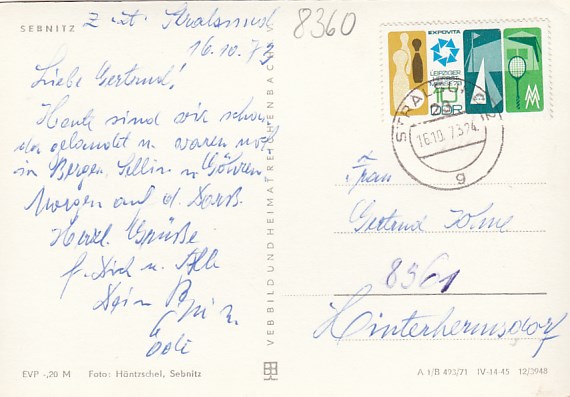 SEBNITZ
Z. Zt. Stralsund
16.10.73
8360
Liebe Gertrud!
Heute sind wir schon
da gelandet u. waren
in Bergen, Sellin u. Göhren
Morgen auf d. Darß.
Herzl. Grüße
f. Dich u. Alle
Dein
VEB BILD UND HEIMAT REICHENBACH V
EXPOVITA
LEIPZIGER
10
DDR
MM
STRALSUND 2
23
16.10.73.24
g
Frau
Gertrud
8361
Hinterhermsdorf
EVP -,20 M Foto: Häntzschel, Sebnitz
A 1/B 473/71 IV-14-45 12/3948